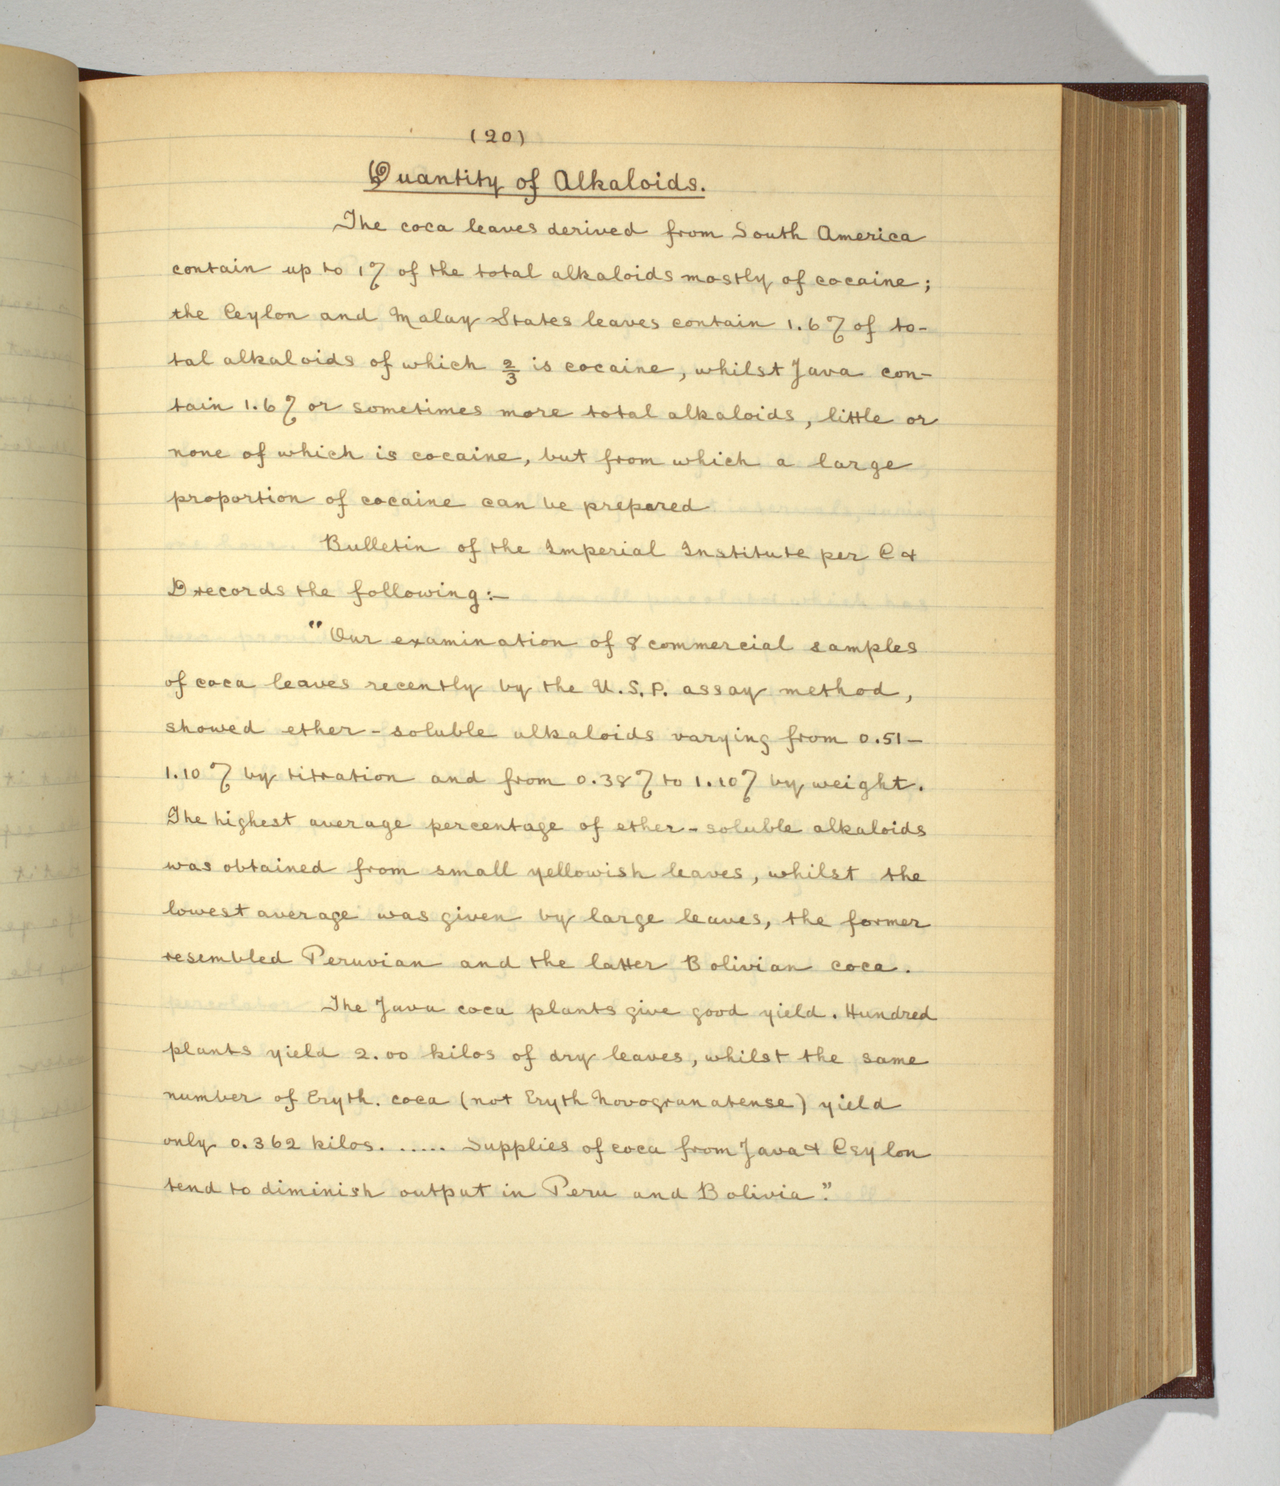 (20)
Quantity of Alkaloids.
The coca leaves derived from South America
contain up to 1% of the total alkaloids mostly of cocaine;
the Ceylon and Malay States leaves contain 1.6% of to-
tal alkaloids of which 2/3 is cocaine, whilst Java con-
tain 1.6% or sometimes more total alkaloids, little or
none of which is cocaine, but from which a large
proportion of cocaine can be prepared
Bulletin of the Imperial Institute per C &
D records the following:-
"Our examination of 8 commercial samples
of coca leaves recently by the U.S.P. assay method,
showed ether-soluble alkaloids varying from 0.51-
1.10% by titration and from 0.38% to 1.10% by weight.
The highest average percentage of ether-soluble alkaloids
was obtained from small yellowish leaves, whilst the
lowest average was given by large leaves, the former
resembled Peruvian and the latter Bolivian coca.
The Java coca plants give good yield. Hundred
plants yield 2.00 kilos of dry leaves, whilst the same
number of Eryth. coca (not Eryth Novogranatense) yield
only 0.362 kilos. ..... Supplies of coca from Java & Ceylon
tend to diminish output in Peru and Bolivia."